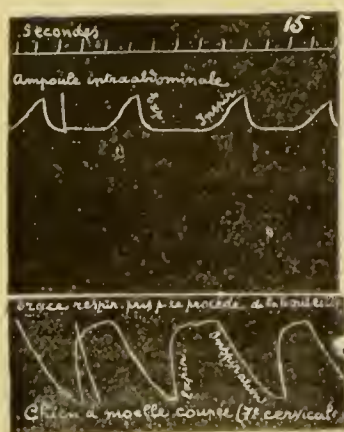 Secondes 15
Ampoule intraabdominale
Expir.
Inspir.
Tracé respir. pris p. le procédé de la bouteille
Expir.
Inspiration
Chien à moelle coupée (7e cervicale